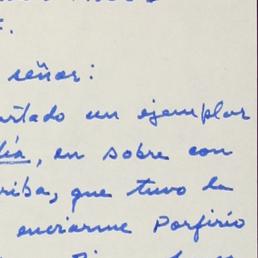 F.
señor:
un ejemplar
, en sobre con
riba, que tuvo la
enviarme Porfirio